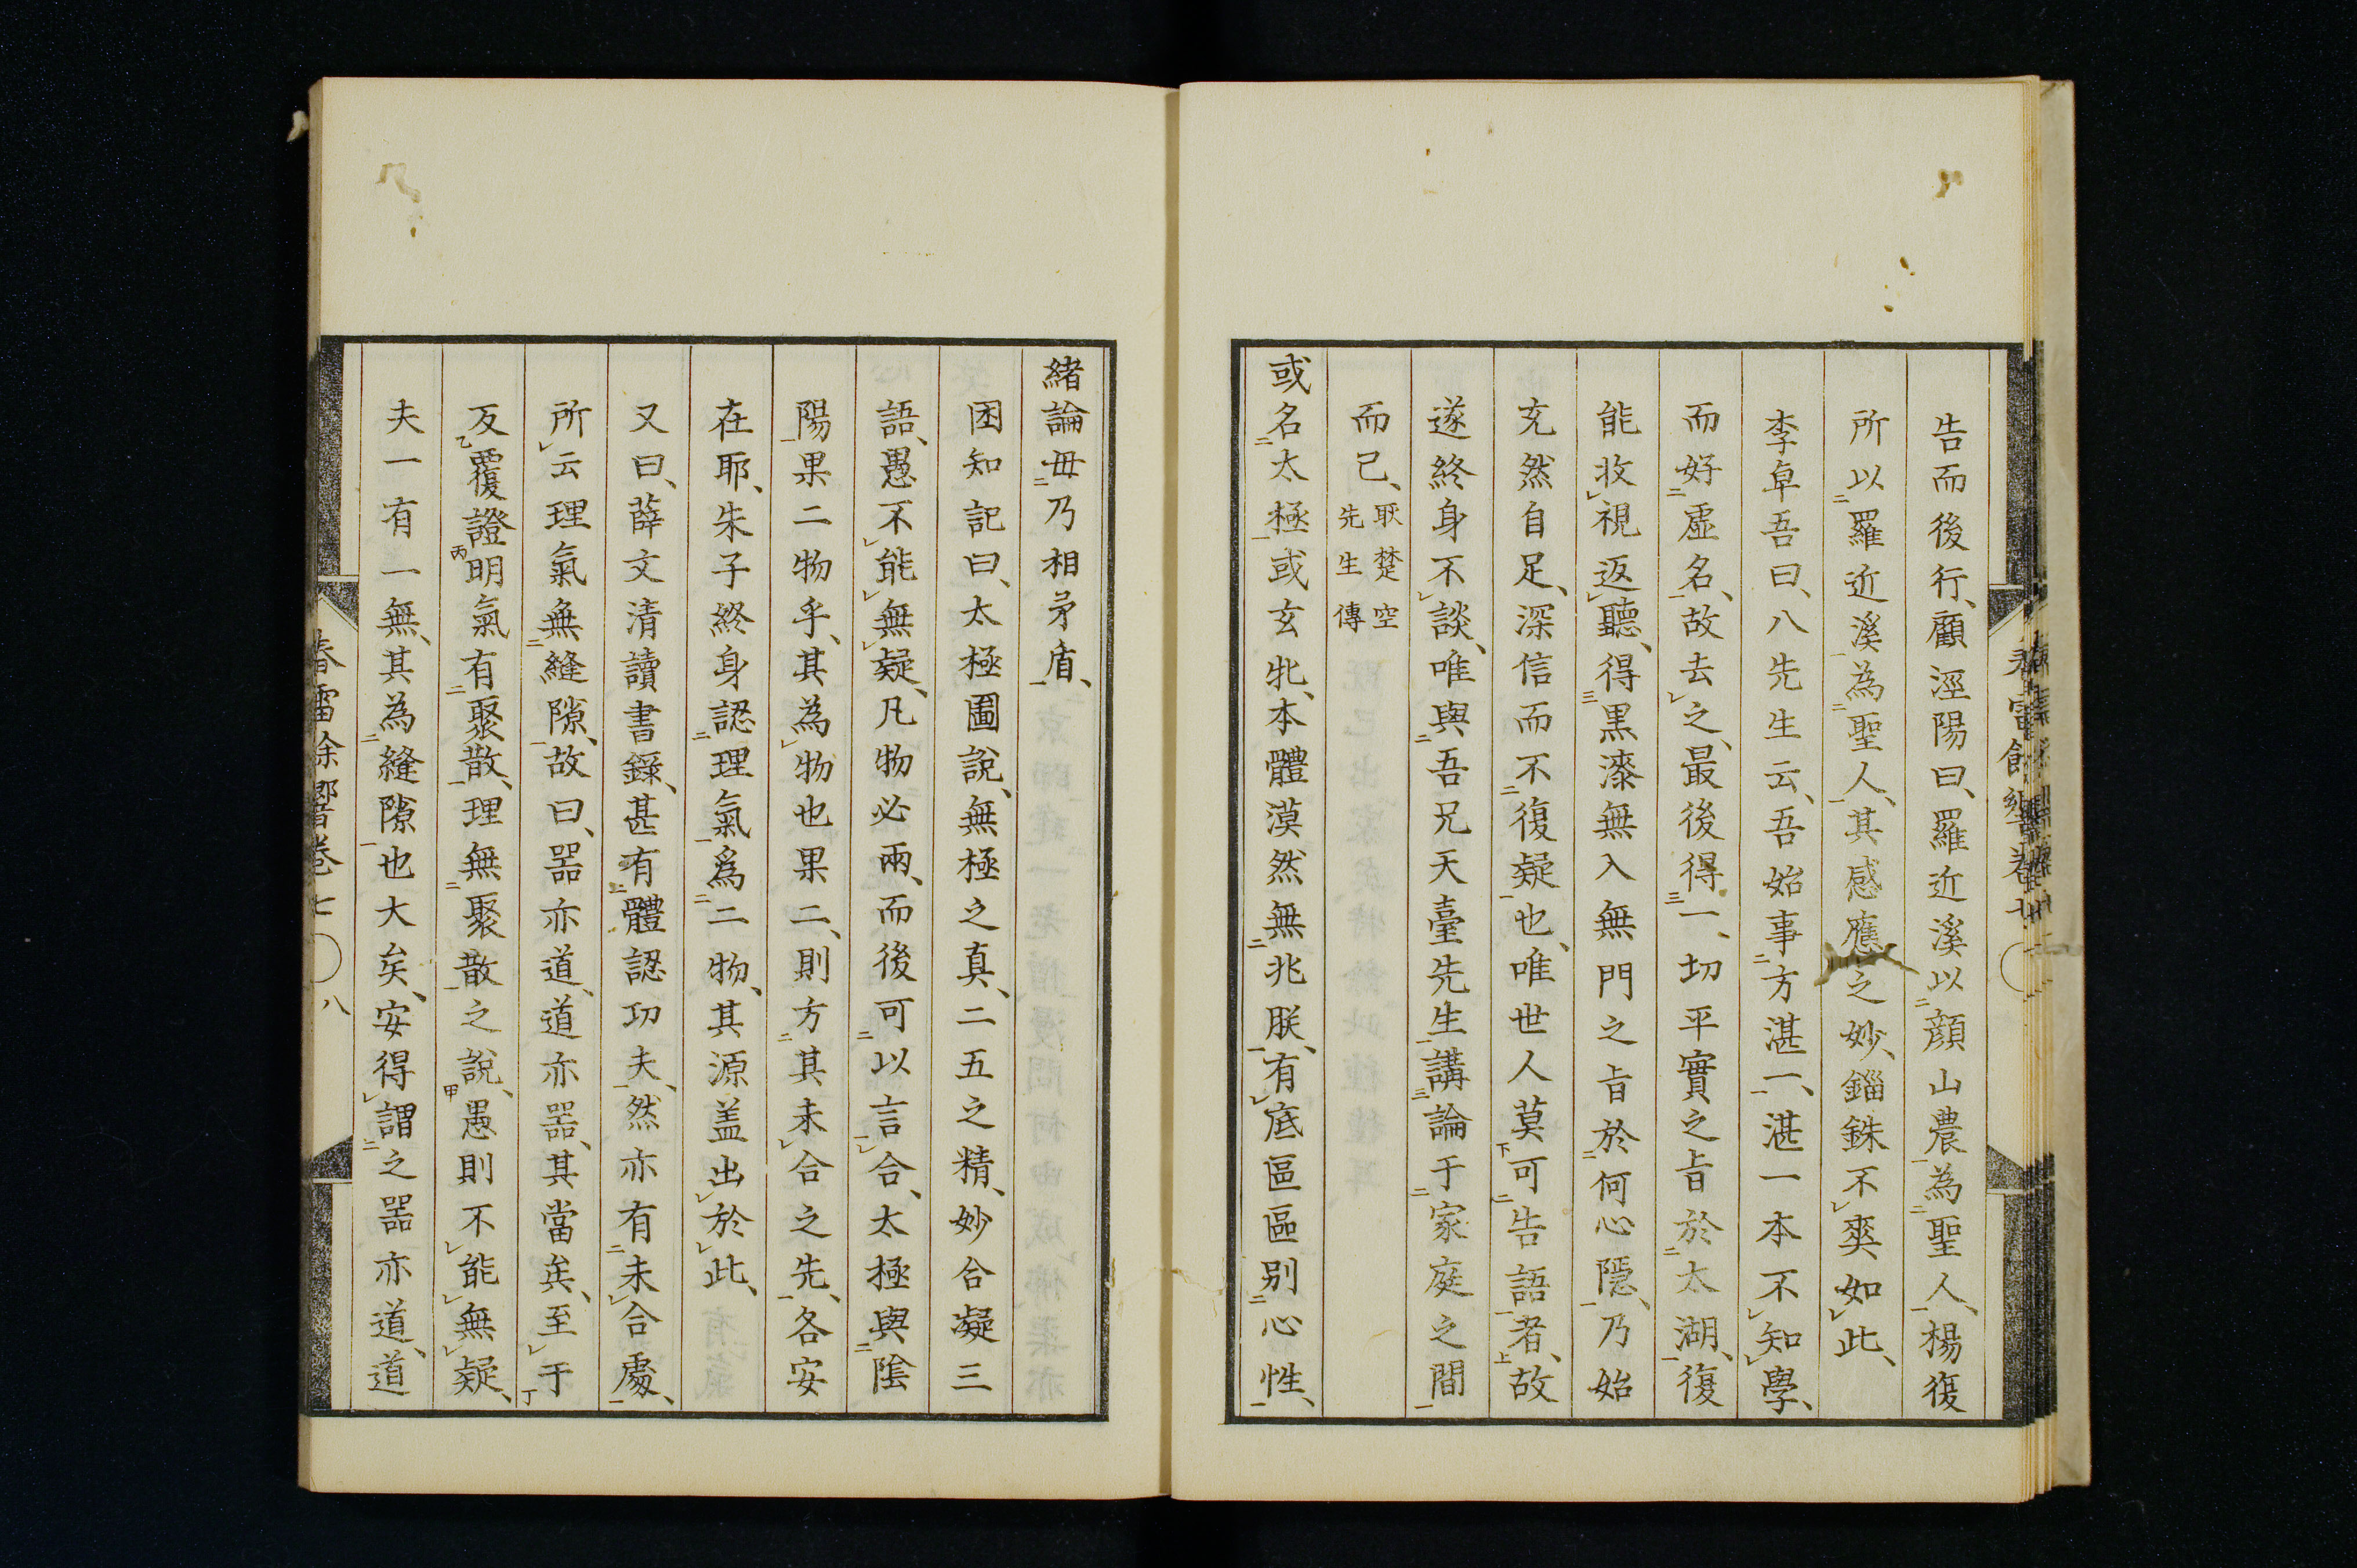 告而後行、顧涇陽曰、羅近溪以顔山農為聖人、楊復
所以羅近溪為聖人、其感應之妙、錙銖不爽如此、
李卓吾曰、八先生云、吾始事方湛一、湛一本不知學、
而好虛名、故去之、最後得一、切平實之旨於太湖、復
能收視返聽、得黒漆無入無門之旨於何心隱、乃始
充然自足、深信而不復疑也、唯世人莫可告語者、故
遂終身不談、唯與吾兄天臺先生講論于家庭之間
而已、耿楚空先生傳
或名太極或玄牝、本體漠然無兆朕、有底區區别心性、
緒論毋乃相矛盾、
困知記曰、太極圖說、無極之真、二五之精、妙合凝三
語、愚不能無疑、凡物必兩、而後可以言合、太極與陰
陽果二物乎、其為物也果二、則方其未合之先、各安
在耶、朱子終身認理氣爲二物、其源盖出於此、
又曰、薛文清讀書錄、甚有體認功夫、然亦有未合處、
所云理氣無縫隙、故曰、器亦道、道亦器、其當矣、至于
反覆證明氣有聚散、理無聚散之說、愚則不能無疑、
夫一有一無、其為縫隙也大矣、安得謂之器亦道、道
春雷餘響卷七 八